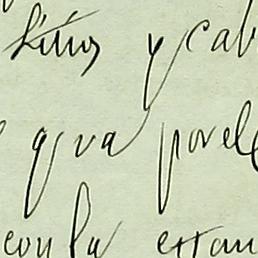 sitios y cab
e qua por el
con la estan